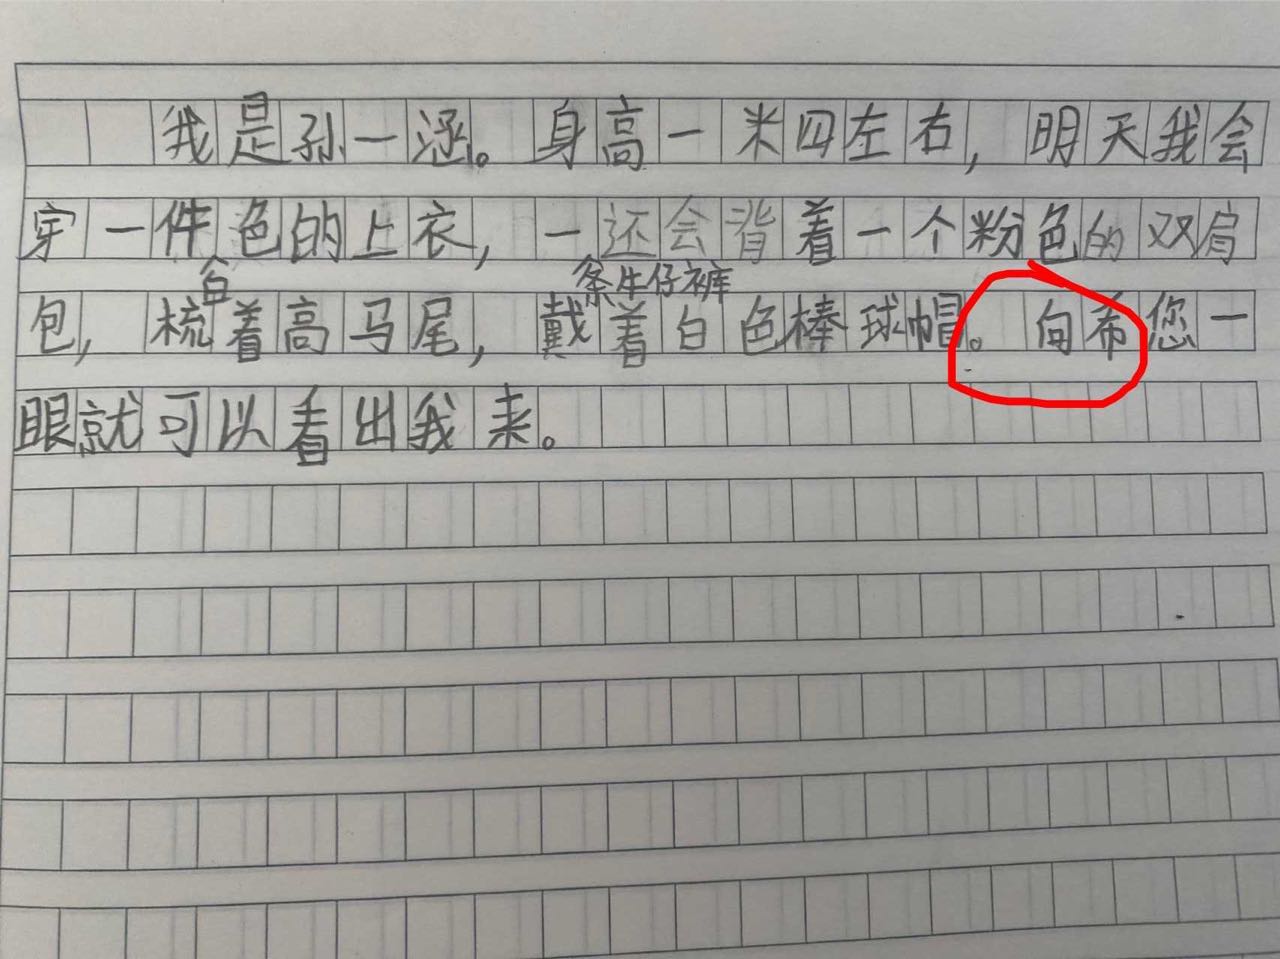 我是孙一涵。身高一米四左右,明天我会
穿一件色的上衣,一还会背着一个粉色的双肩
白 条牛仔裤
包,梳着高马尾,戴着白色棒球帽。向希您一
眼就可以看出我来。